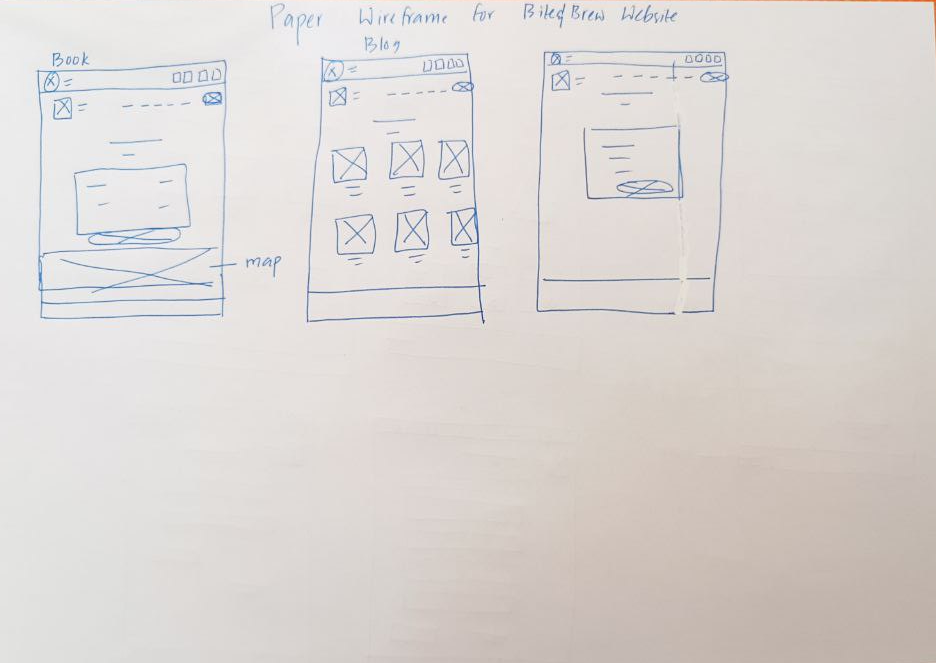 Paper Wireframe for Bite&Brew Website
Book
Blog
map